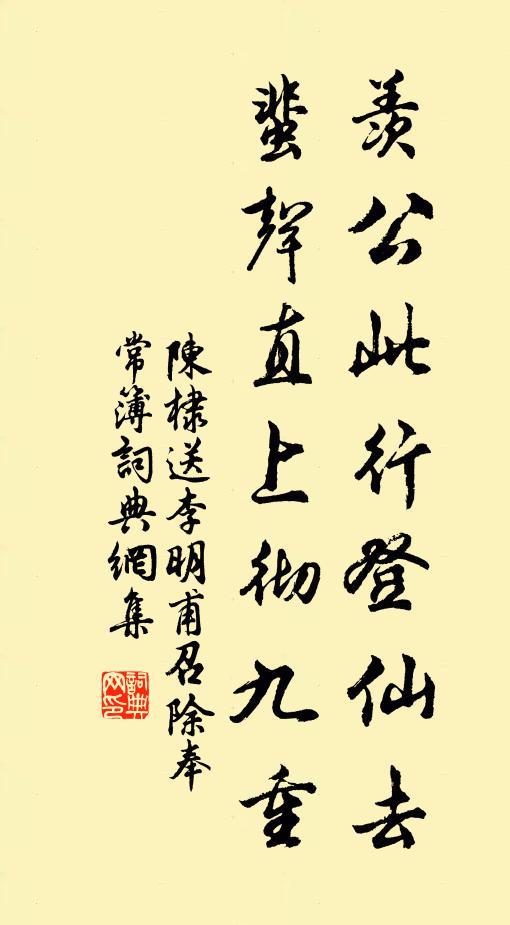 羨公此行登仙去
蜚聲直上彻九重
陳棣送李明甫召除奉
常簿詞典網集
詞典網印